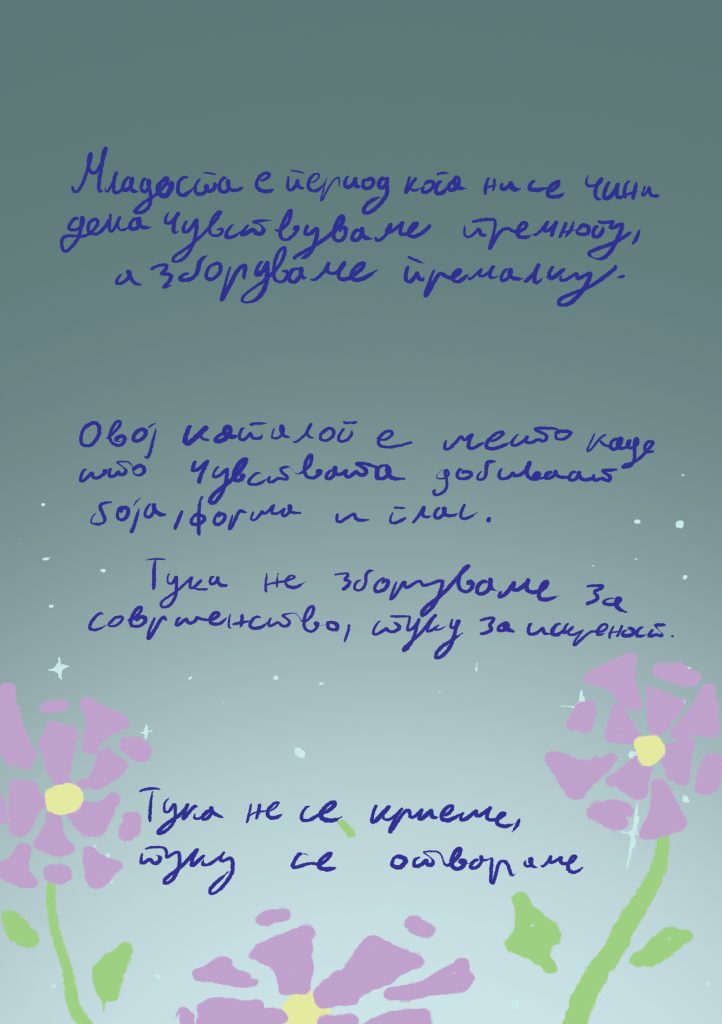 Младоста е период кога ни се чини
дека чувствуваме премногу,
а зборуваме премалку.
Овој каталог е место каде
што чувствата добиваат
боја, форма и глас.
Тука не зборуваме за
совршенство, туку за искреност.
Тука не се криеме,
туку се отвораме